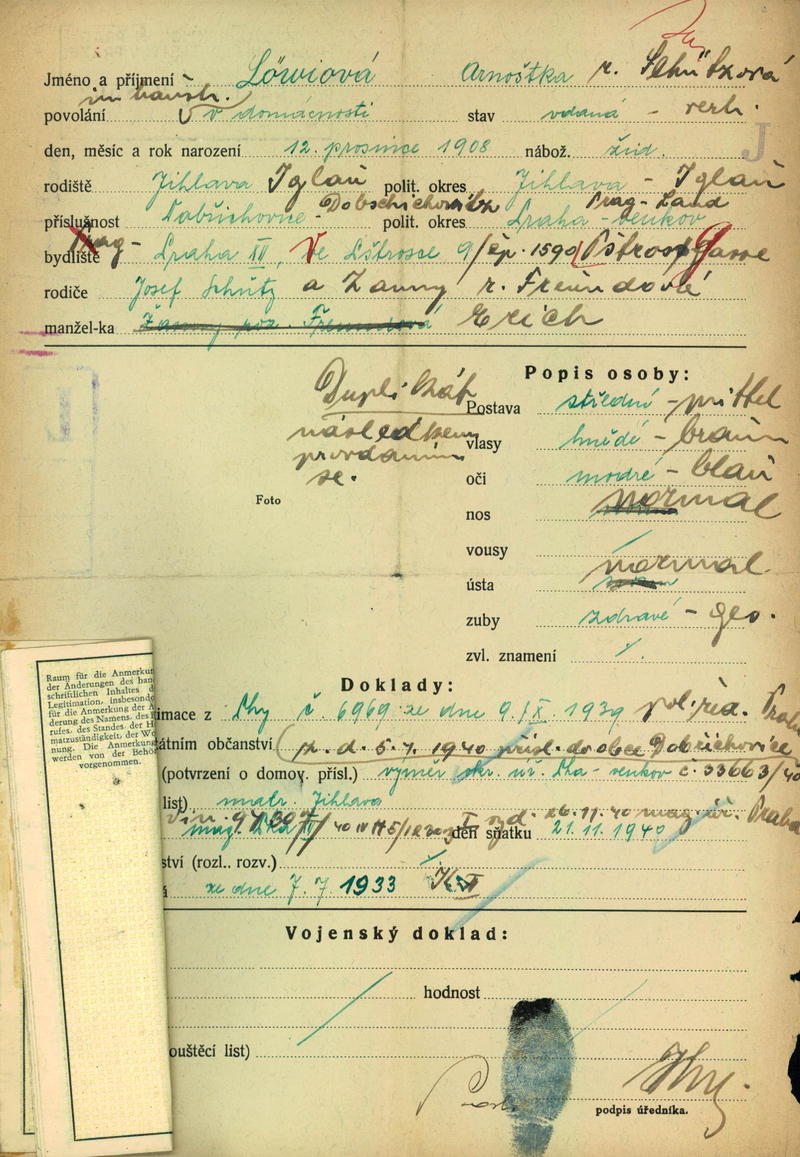 Jméno a příjmení Löwiová Arnoštka r. Schützová
im Haush.
povolání v domácnosti stav vdaná - verh.
J
den, měsíc a rok narození 12. prosince 1908 nábož. žid.
rodiště Jihlava Iglau polit. okres Jihlava - Iglau
Dobschichowitz Prag - Land
příslušnost Dobřichovice - polit. okres Praha - venkov
bydliště Prag - Praha XII, Ve Pštrosce 9/čp. 1590 Pštross Gasse
rodiče Josef Schütz a Žanny r. Freundové
manžel-ka Žanny roz. Freundová Erich
Popis osoby:
Duplikát
následkem
provdáním
se.
Foto
Postava střední - mittel
vlasy hnědé - braun
oči modré - blau
nos normal
vousy /
ústa normal
zuby zdravé - ges.
zvl. znamení /.
Raum für die Anmerkun
der Änderungen des han
schriftlichen Inhaltes d
Legitimation, insbesonde
für die Anmerkung der Ä
derung des Namens, des B
rufes, des Standes, der H
matzuständigkeit, der Wo
nung. Die Anmerkung
werden von der Behö
vorgenommen.
Doklady:
imace z Phy č. 6969 ze dne 9./X. 1939 pol. řed. Praha
átním občanství p. d. 5. 7. 1940 přísl. do obce Dobřichovice
(potvrzení o domov. přísl.) výměr okr. úř. Pha - venkov č. 33663/40
list) matr. Jihlava
den sňatku 21. 11. 1940 26. 11. 40 mag. úř. Praha
ství (rozl.. rozv.) /
ze dne 7. 7. 1933
Vojenský doklad:
hodnost
ouštěcí list)
podpis úředníka.